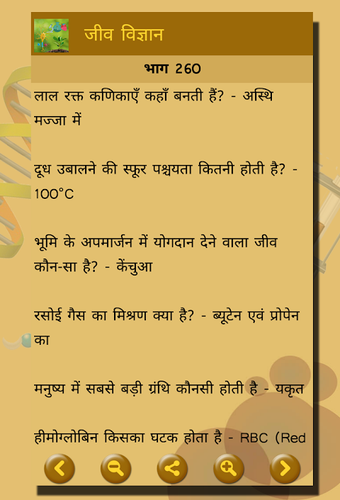 जीव विज्ञान
भाग 260
लाल रक्त कणिकाएँ कहाँ बनती हैं? - अस्थि
मज्जा में
दूध उबालने की स्फूर पश्चयता कितनी होती है? -
100°C
भूमि के अपमार्जन में योगदान देने वाला जीव
कौन-सा है? - केंचुआ
रसोई गैस का मिश्रण क्या है? - ब्यूटेन एवं प्रोपेन
का
मनुष्य में सबसे बड़ी ग्रंथि कौनसी होती है - यकृत
हीमोग्लोबिन किसका घटक होता है - RBC (Red